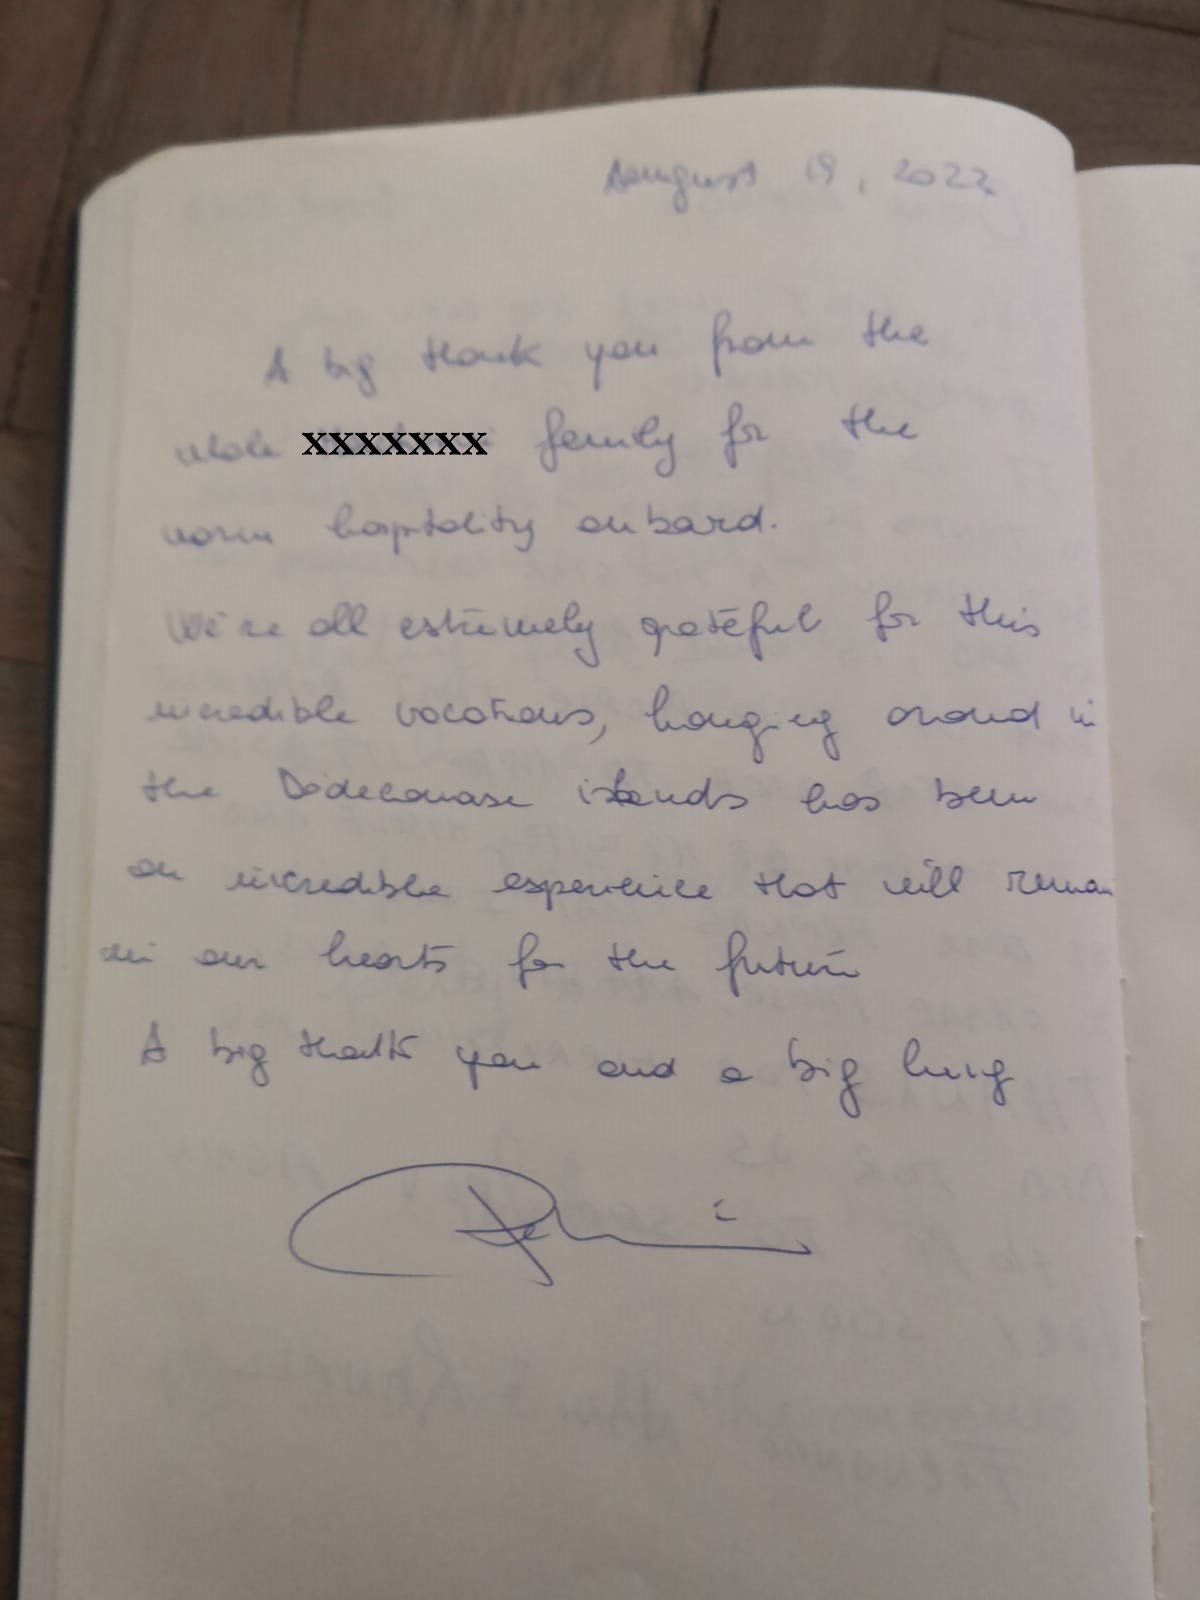 August 19, 2022
A big thank you from the
whole xxxxxxx family for the
warm hospitality onboard.
We're all extremely grateful for this
incredible vacations, hanging around in
the Dodecanase islands has been
an incredible experience that will remain
in our hearts for the future
A big thank you and a big hug